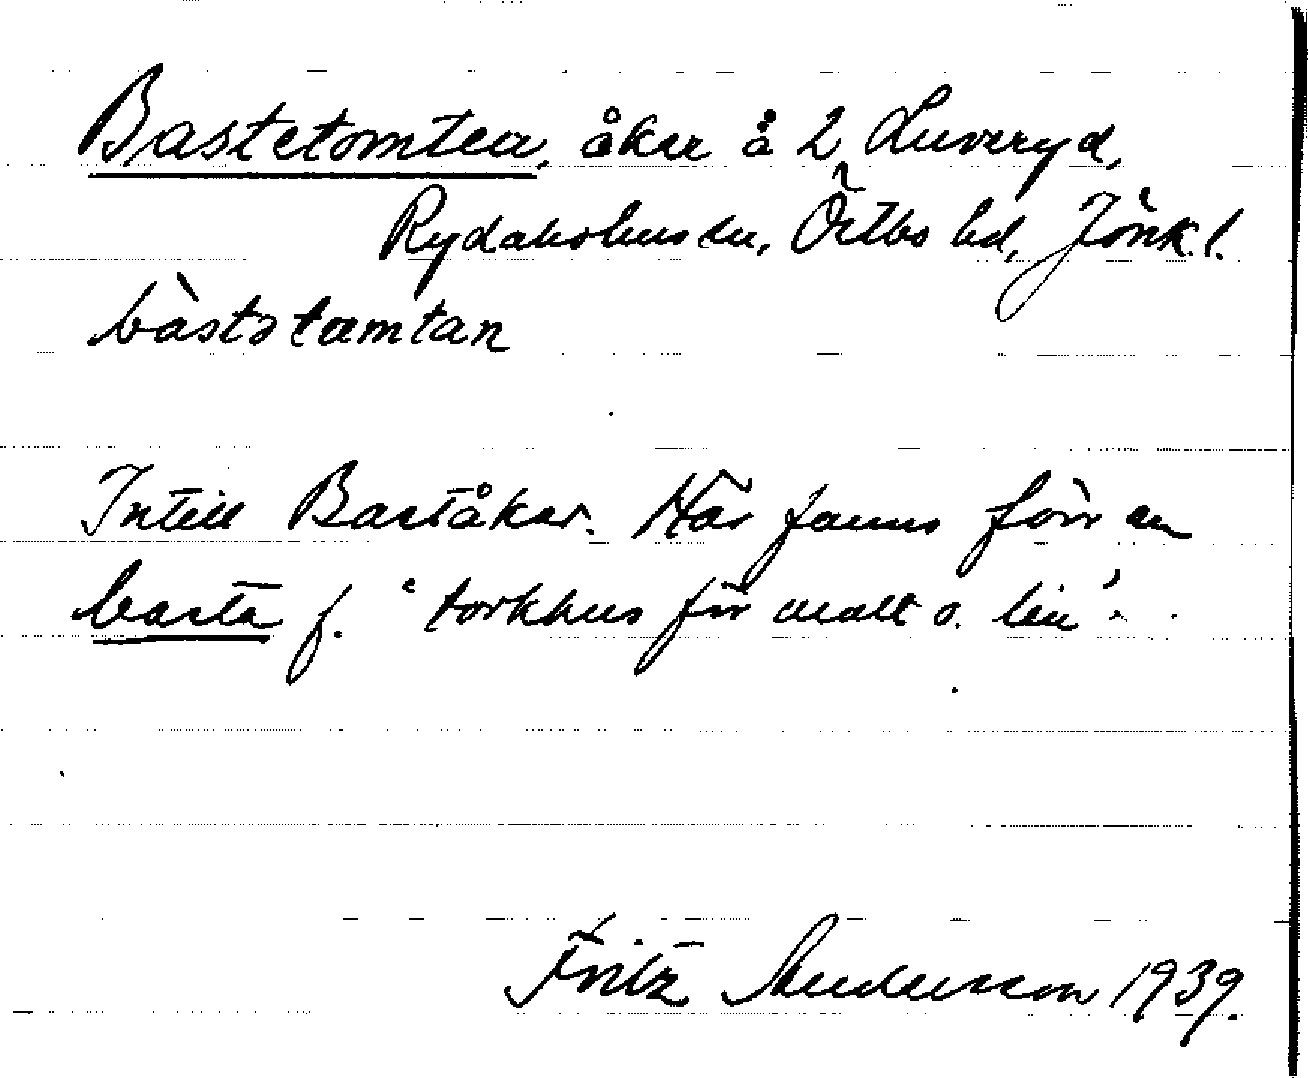 Bastetomten, åker å 2 Luveryd,
Rydaholms sn, Östbo hd, Jönk. l.
bàstətæmtan
Intill Baståker. Här fanns förr en
basta f. "torkhus för malt o. lin".
Fritz Andersson 1939.